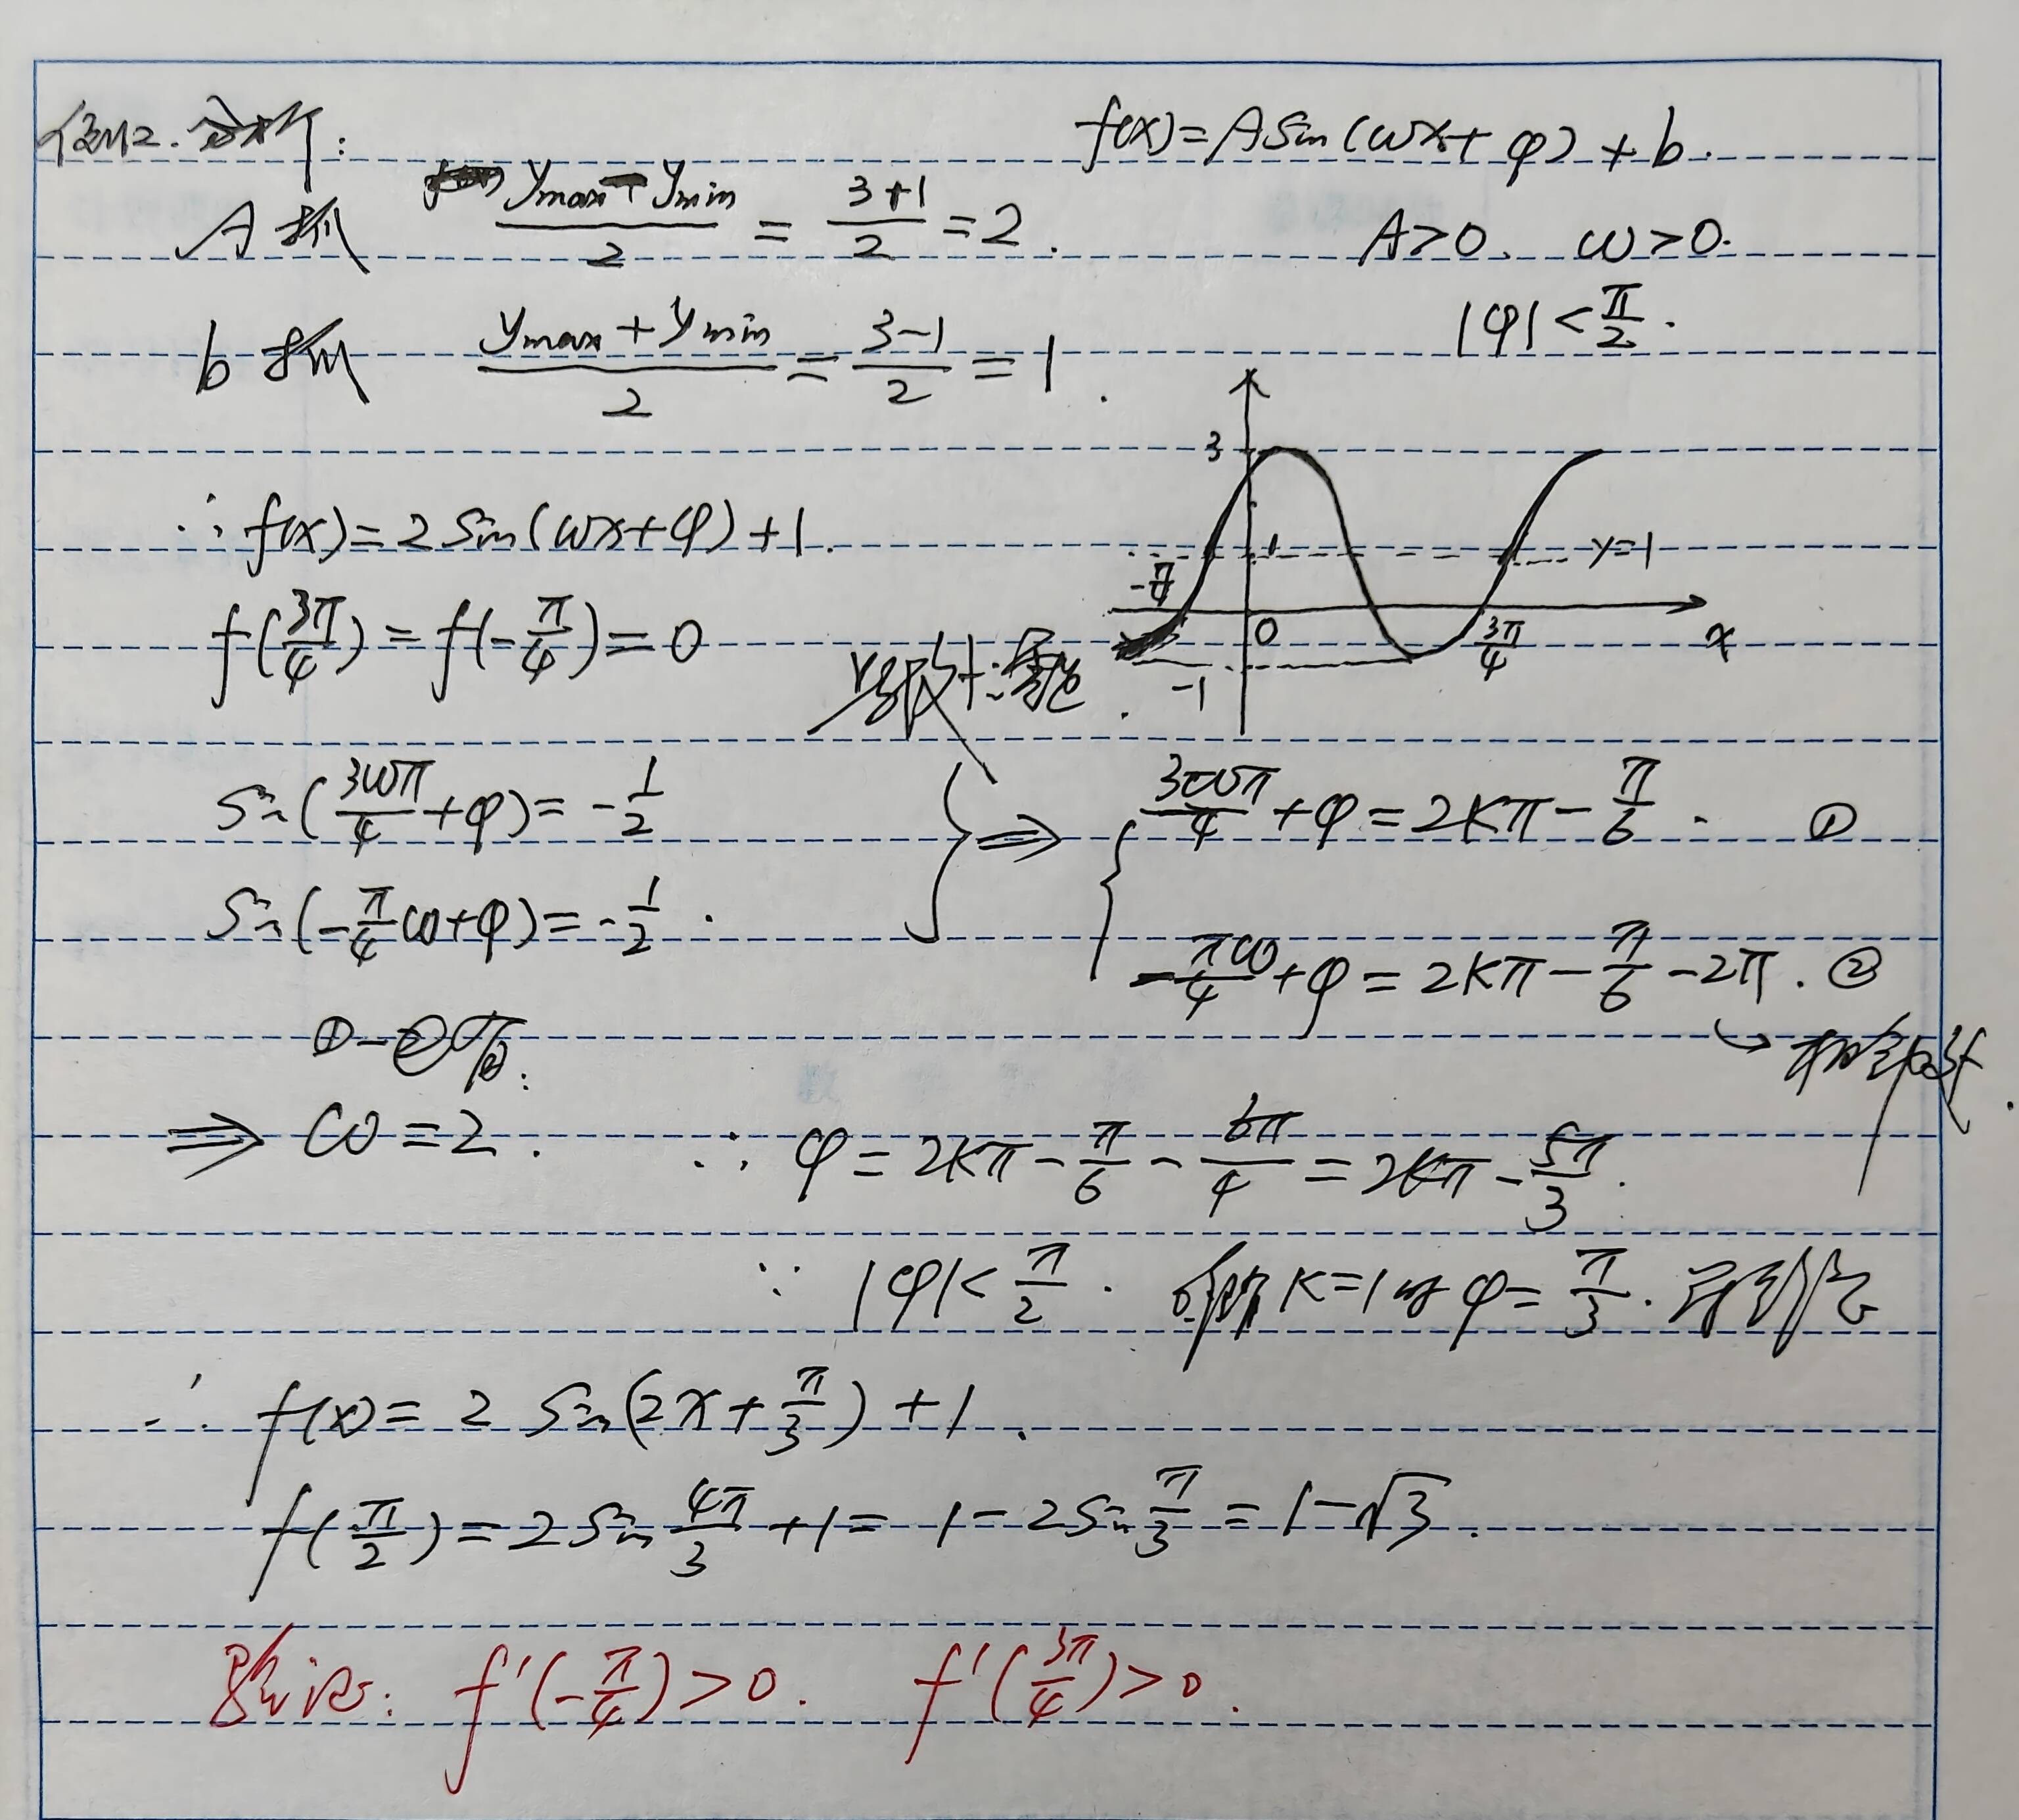 例2. 分析:
f(x)=Asin(ωx+φ)+b.
A>0. ω>0.
|φ|<π/2.
A振 (ymax-ymin)/2 = (3+1)/2 = 2.
b (ymax+ymin)/2 = (3-1)/2 = 1.
3
1
y=1
-π/4
0
3π/4
x
-1
∴ f(x)=2sin(ωx+φ)+1.
f(3π/4)=f(-π/4)=0
sin(3ωπ/4+φ)=-1/2
sin(-π/4ω+φ)=-1/2.
⇒ { 3ωπ/4+φ=2kπ-π/6. ①
-πω/4+φ=2kπ-π/6-2π. ②
①-②可得:
⇒ ω=2. ∴ φ=2kπ-π/6-6π/4=2kπ-5π/3.
∵ |φ|<π/2. k=1时 φ=π/3.
∴ f(x)=2sin(2x+π/3)+1.
f(π/2)=2sin4π/3+1=1-2sinπ/3=1-√3.
验证: f'(-π/4)>0. f'(3π/4)>0.